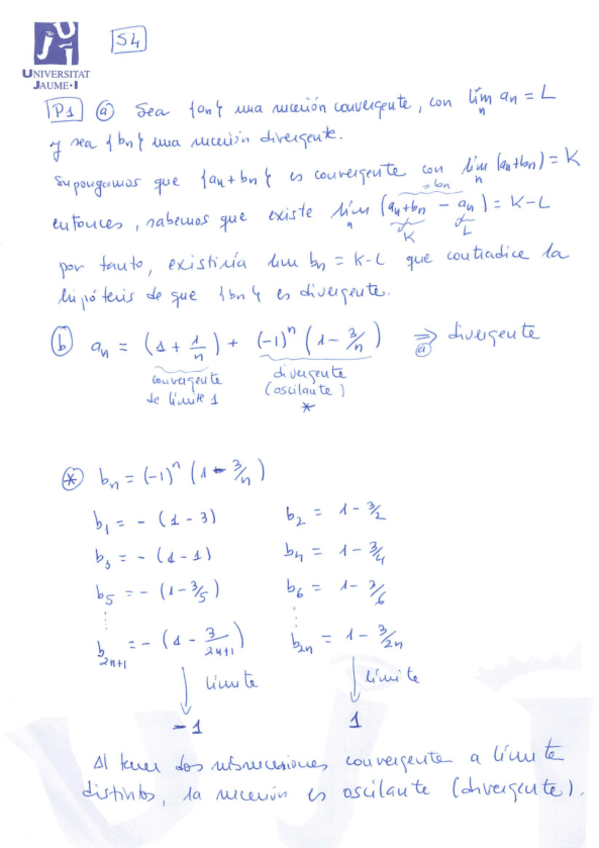 UNIVERSITAT
JAUME·I
S4
P1 (a) Sea {an} una sucesión convergente, con lim_n a_n = L
y sea {bn} una sucesión divergente.
Supongamos que {an+bn} es convergente con lim_n (an+bn) = K
entonces, sabemos que existe lim_n (an+bn - an) = K-L
= bn
K L
por tanto, existiría lim bn = K-L que contradice la
hipótesis de que {bn} es divergente.
(b) a_n = (1 + 1/n) + (-1)^n (1 - 3/n) ⇒ divergente
(a)
convergente de límite 1
divergente (oscilante)
*
(*) b_n = (-1)^n (1 - 3/n)
b_1 = - (1 - 3) b_2 = 1 - 3/2
b_3 = - (1 - 1) b_4 = 1 - 3/4
b_5 = - (1 - 3/5) b_6 = 1 - 3/6
⋮ ⋮
b_{2n+1} = - (1 - 3/(2n+1)) b_{2n} = 1 - 3/2n
↓ límite ↓ límite
-1 1
Al tener dos subsucesiones convergente a límite
distintos, la sucesión es oscilante (divergente).
UJI